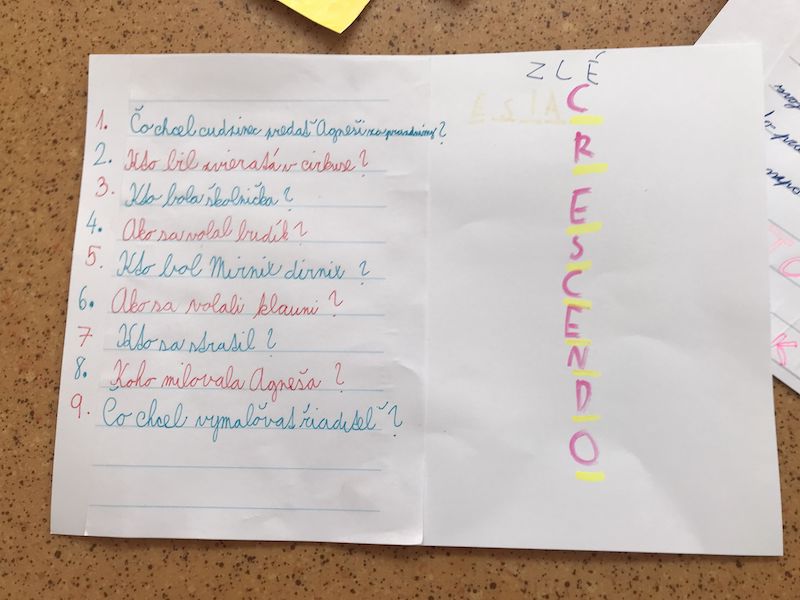 1. Čo chcel cudzinec predať Agneši na prázdniny?
2. Kto bil zvieratá v cirkuse?
3. Kto bola školníčka?
4. Ako sa volal budík?
5. Kto bol Mirnix dirnix?
6. Ako sa volali klauni?
7 Kto sa stratil?
8. Koho milovala Agneša?
9. Čo chcel vymaľovať riaditeľ?
ZLÉ
C
R
E
S
C
E
N
D
O